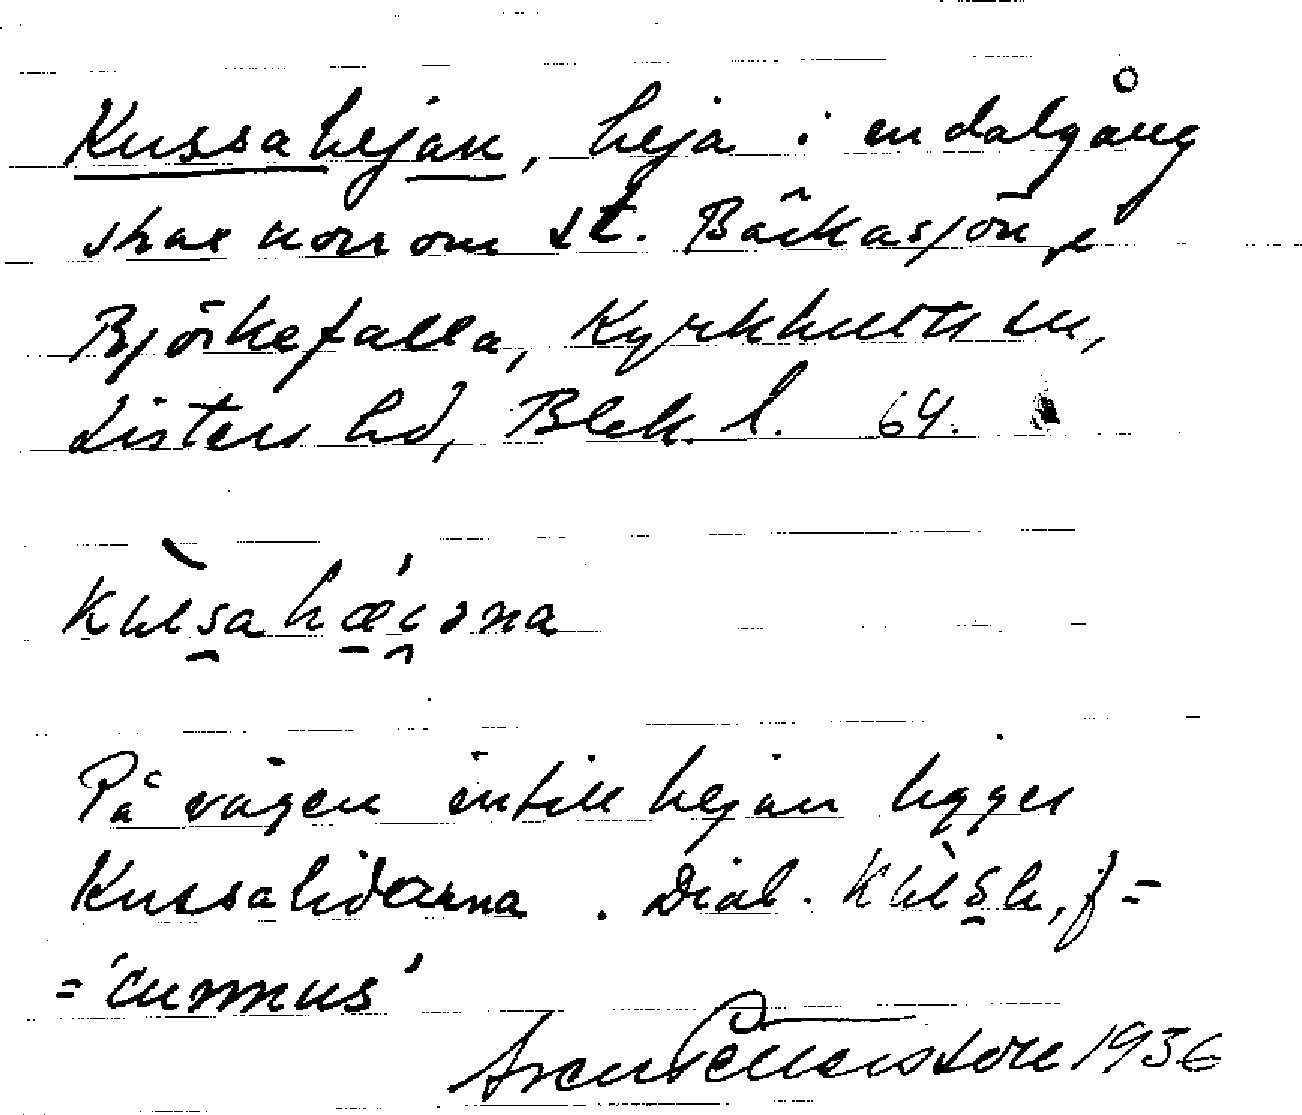 Kussahejan, heja i en dalgång
strax norr om St. Bäckasjön,
Björkefalla, Kyrkhults sn,
Listers hd, Blek. l. 64.
På vägen intill hejan ligger
Kussaliderna. Dial.
= 'cunnus'
Sven Pettersson 1936